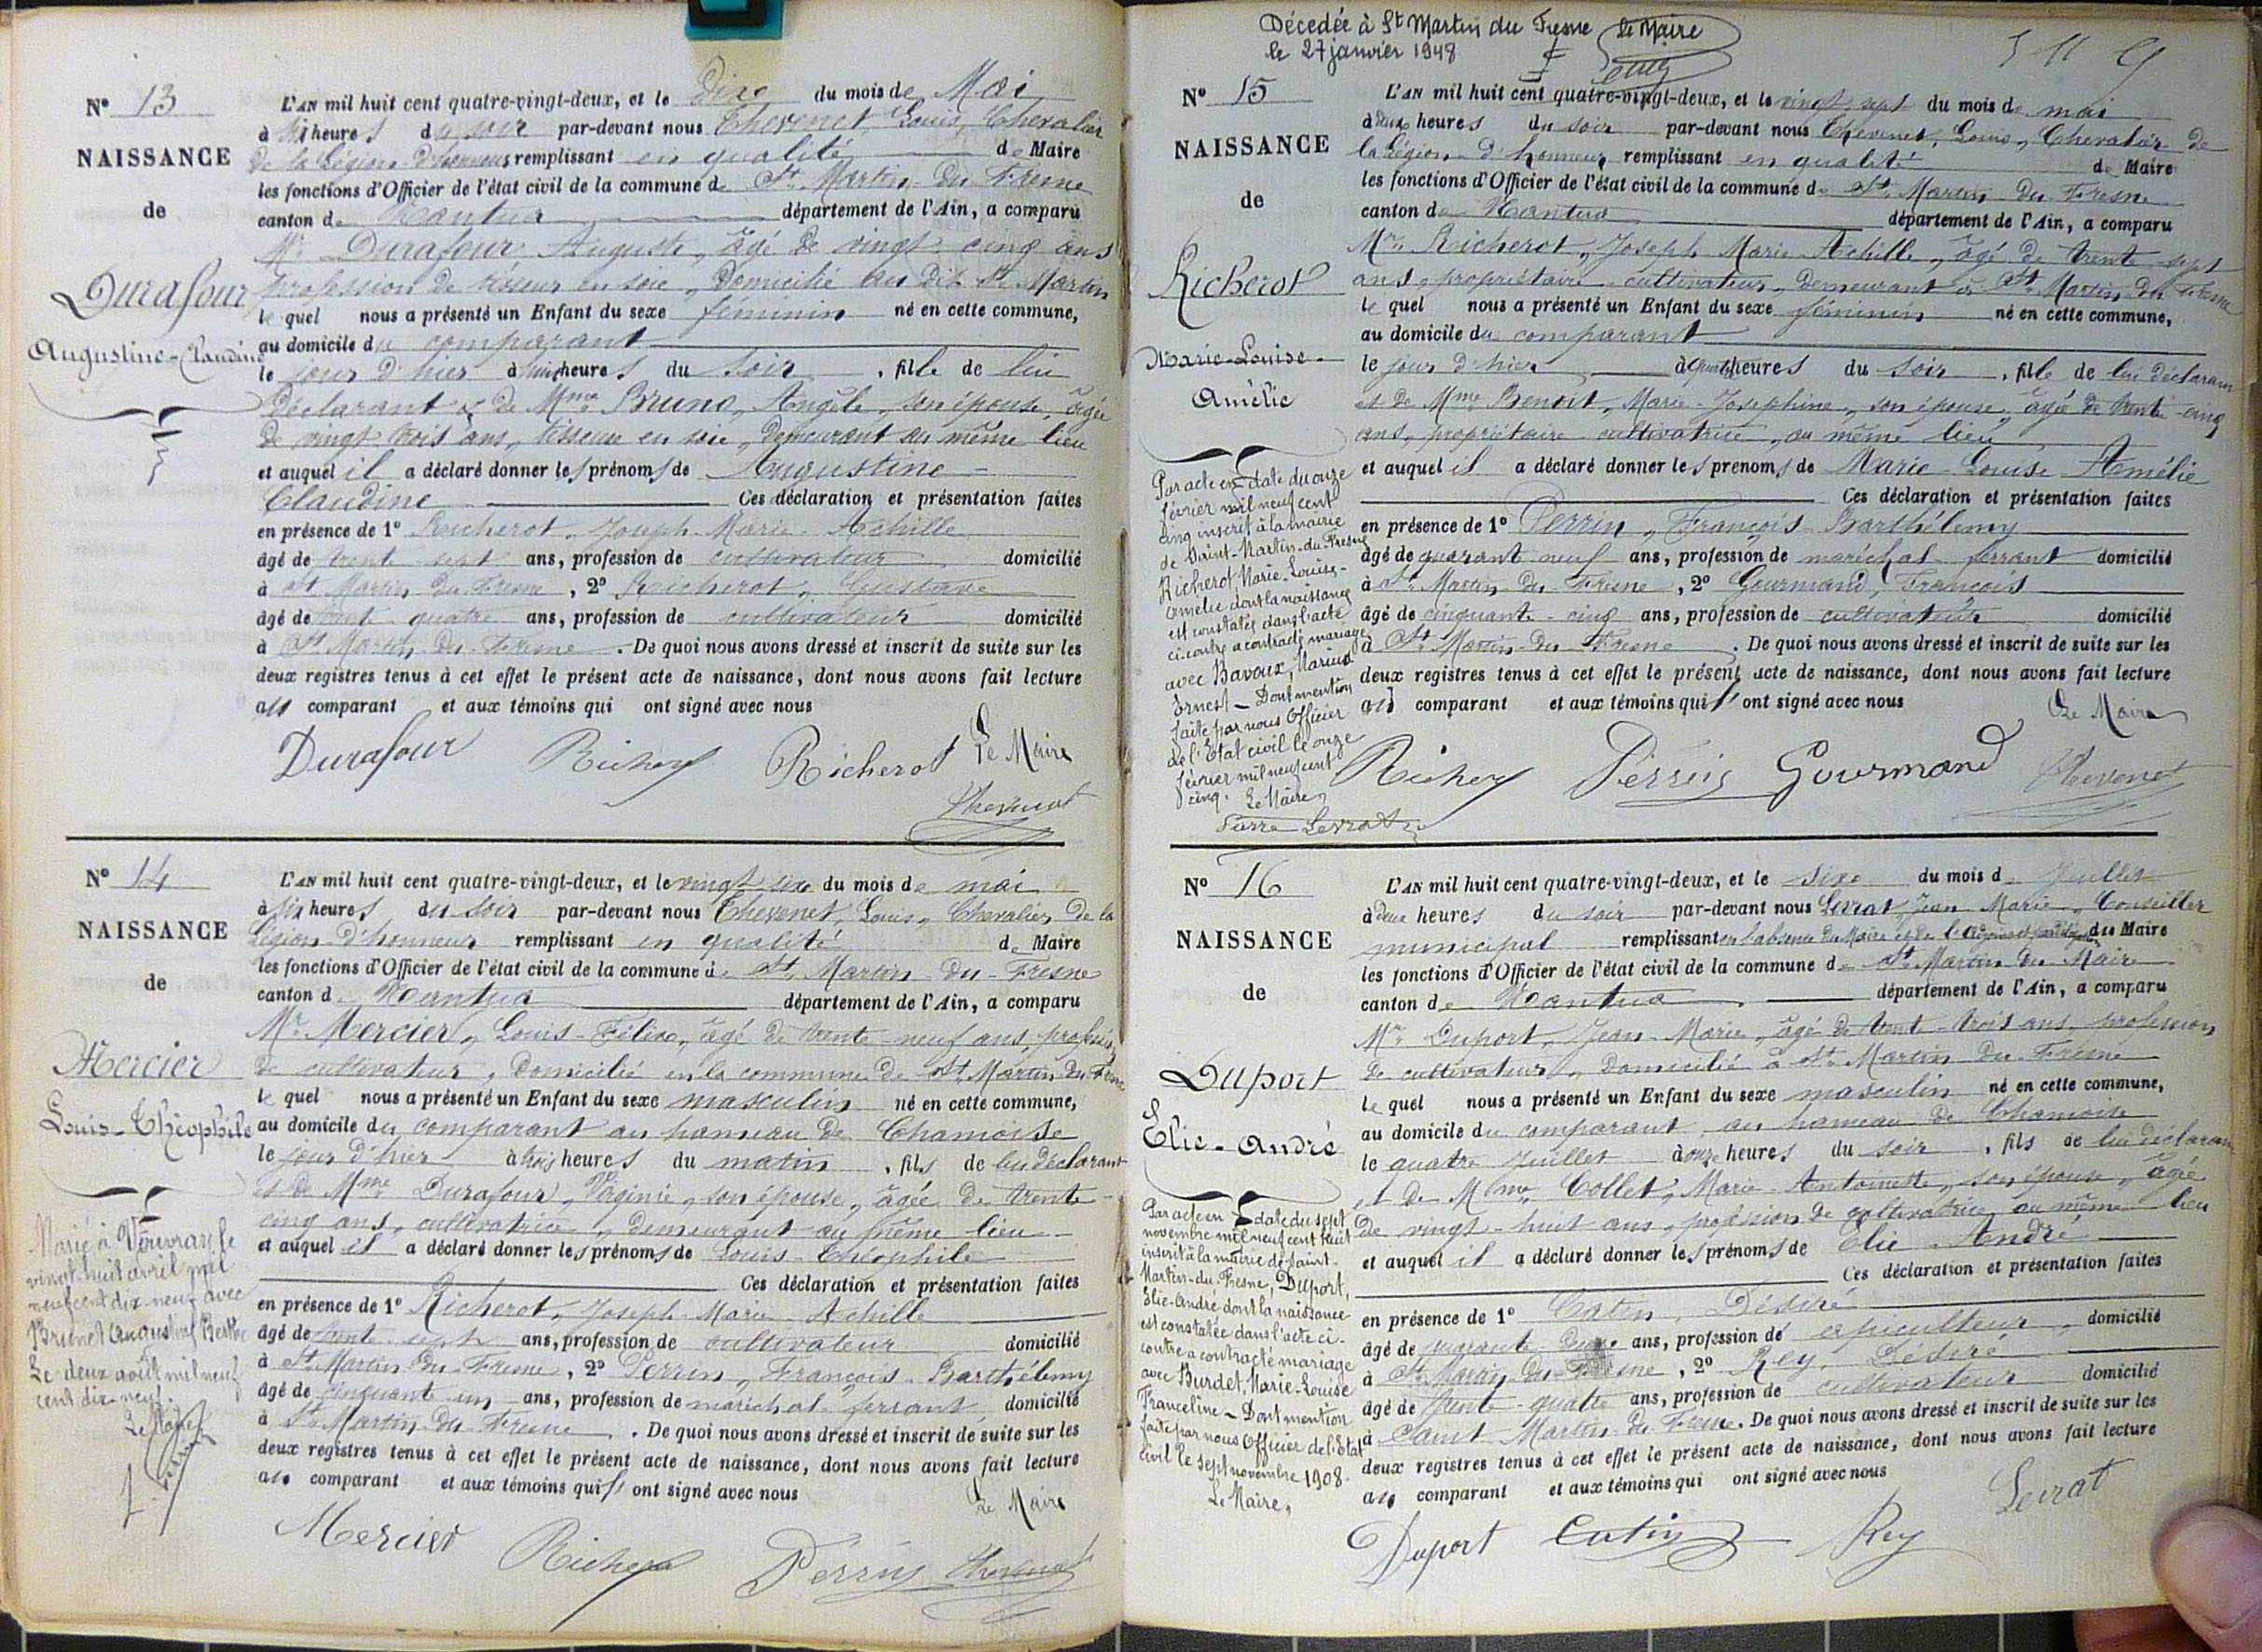 N° 13
NAISSANCE
de
Durafour
Augustine-Claudine
L'AN mil huit cent quatre-vingt-deux, et le dix du mois de Mai
à six heures du soir par-devant nous Thevenet, Louis, Chevalier
de la Légion d'honneur remplissant en qualité de Maire
les fonctions d'Officier de l'état civil de la commune de St Martin-du-Fresne
canton de Nantua département de l'Ain, a comparu
Mr Durafour Auguste, âgé de vingt-cinq ans
profession de tisseur en soie, domicilié au dit St Martin
le quel nous a présenté un Enfant du sexe féminin né en cette commune,
au domicile du comparant
le jour d'hier à huit heures du soir, fille de lui
déclarant et de Mme Bruno, Angèle, son épouse, âgée
de vingt trois ans, tisseuse en soie, demeurant au même lieu
et auquel il a déclaré donner les prénoms de Augustine
Claudine Ces déclaration et présentation faites
en présence de 1° Richerot, Joseph-Marie-Achille
âgé de trente sept ans, profession de cultivateur domicilié
à St Martin-du-Fresne, 2° Richerot, Gustave
âgé de trente quatre ans, profession de cultivateur domicilié
à St Martin-du-Fresne. De quoi nous avons dressé et inscrit de suite sur les
deux registres tenus à cet effet le présent acte de naissance, dont nous avons fait lecture
au comparant et aux témoins qui ont signé avec nous
Durafour Richerot Richerot Le Maire
Thevenet
N° 14
NAISSANCE
de
Mercier
Louis-Théophile
Marié à Vouvray le
vingt-huit avril mil
neuf cent dix-neuf avec
Brunet Augustine Berthe
Le deux août mil neuf
cent dix-neuf.
Le Maire
L'AN mil huit cent quatre-vingt-deux, et le vingt six du mois de mai
à six heures du soir par-devant nous Thevenet, Louis, Chevalier de la
Légion-d'honneur remplissant en qualité de Maire
les fonctions d'Officier de l'état civil de la commune de St Martin-du-Fresne
canton de Nantua département de l'Ain, a comparu
Mr Mercier, Louis-Félix, âgé de trente-neuf ans, profession
de cultivateur, domicilié en la commune de St Martin du Fresne
le quel nous a présenté un Enfant du sexe masculin né en cette commune,
au domicile du comparant au hameau de Chamoise
le jour d'hier à trois heures du matin, fils de lui déclarant
et de Mme Durafour, Virginie, son épouse, âgée de trente-
cinq ans, cultivatrice, demeurant au même lieu
et auquel il a déclaré donner les prénoms de Louis-Théophile
Ces déclaration et présentation faites
en présence de 1° Richerot, Joseph-Marie-Achille
âgé de trente sept ans, profession de cultivateur domicilié
à St Martin-du-Fresne, 2° Perrin, François-Barthélemy
âgé de cinquante un ans, profession de maréchal-ferrant domicilié
à St Martin-du-Fresne. De quoi nous avons dressé et inscrit de suite sur les
deux registres tenus à cet effet le présent acte de naissance, dont nous avons fait lecture
au comparant et aux témoins qui ont signé avec nous
Le Maire
Mercier Richerot Perrin Thevenet
Décedée à St Martin du Fresne Le Maire
le 27 janvier 1948
N° 15
NAISSANCE
de
Richerot
Marie-Louise-
Amélie
Par acte en date du onze
février mil neuf cent
cinq inscrit à la mairie
de Saint-Martin-du-Fresne
Richerot Marie-Louise-
Amélie dont la naissance
est constatée dans l'acte
ci-contre a contracté mariage
avec Bavoux, Marius
Ernest - Dont mention
faite par nous Officier
de l'Etat civil le onze
février mil neuf cent
cinq. Le Maire,
Pierre Levrat
L'AN mil huit cent quatre-vingt-deux, et le vingt sept du mois de mai
à deux heures du soir par-devant nous Thevenet, Louis, Chevalier de
la Légion-d'honneur remplissant en qualité de Maire
les fonctions d'Officier de l'état civil de la commune de St Martin-du-Fresne
canton de Nantua département de l'Ain, a comparu
Mr Richerot, Joseph-Marie-Achille, âgé de trente-sept
ans, propriétaire-cultivateur, demeurant à St Martin-du-Fresne
le quel nous a présenté un Enfant du sexe féminin né en cette commune,
au domicile du comparant
le jour d'hier à quatre heures du soir, fille de lui déclarant
et de Mme Benoit, Marie-Joséphine, son épouse, âgée de trente-cinq
ans, propriétaire cultivatrice, au même lieu
et auquel il a déclaré donner les prénoms de Marie-Louise-Amélie
Ces déclaration et présentation faites
en présence de 1° Perrin, François-Barthélemy
âgé de quarante-neuf ans, profession de maréchal-ferrant domicilié
à St Martin-du-Fresne, 2° Gourmand, François
âgé de cinquante-cinq ans, profession de cultivateur domicilié
à St Martin-du-Fresne. De quoi nous avons dressé et inscrit de suite sur les
deux registres tenus à cet effet le présent acte de naissance, dont nous avons fait lecture
au comparant et aux témoins qui ont signé avec nous
Le Maire
Richerot Perrin Gourmand Thevenet
N° 16
NAISSANCE
de
Duport
Elie-André
Par acte en date du sept
novembre mil neuf cent huit
inscrit à la mairie de Saint-
Martin-du-Fresne, Duport,
Elie-André dont la naissance
est constatée dans l'acte ci-
contre a contracté mariage
avec Burdet, Marie-Louise
Franceline - Dont mention
faite par nous Officier de l'Etat
civil le sept novembre 1908.
Le Maire,
L'AN mil huit cent quatre-vingt-deux, et le six du mois d Juillet
à deux heures du soir par-devant nous Levrat, Jean Marie, Conseiller
municipal remplissant en l'absence du Maire et de l'adjoint du Maire
les fonctions d'Officier de l'état civil de la commune de St Martin du Maire
canton de Nantua département de l'Ain, a comparu
Mr Duport, Jean-Marie, âgé de trente-trois ans, profession
de cultivateur, domicilié à St Martin-du-Fresne
le quel nous a présenté un Enfant du sexe masculin né en cette commune,
au domicile du comparant, au hameau de Chamoise
le quatre Juillet à onze heures du soir, fils de lui déclarant
et de Mme Collet, Marie Antoinette, son épouse, âgée
de vingt-huit ans, profession de cultivatrice, au même lieu
et auquel il a déclaré donner les prénoms de Elie-André
Ces déclaration et présentation faites
en présence de 1° Catin, Désiré
âgé de quarante-deux ans, profession de apiculteur, domicilié
à St Martin-du-Fresne, 2° Rey, Désiré
âgé de trente-quatre ans, profession de cultivateur domicilié
à Saint Martin-du-Fresne. De quoi nous avons dressé et inscrit de suite sur les
deux registres tenus à cet effet le présent acte de naissance, dont nous avons fait lecture
au comparant et aux témoins qui ont signé avec nous
Duport Catin Rey Levrat